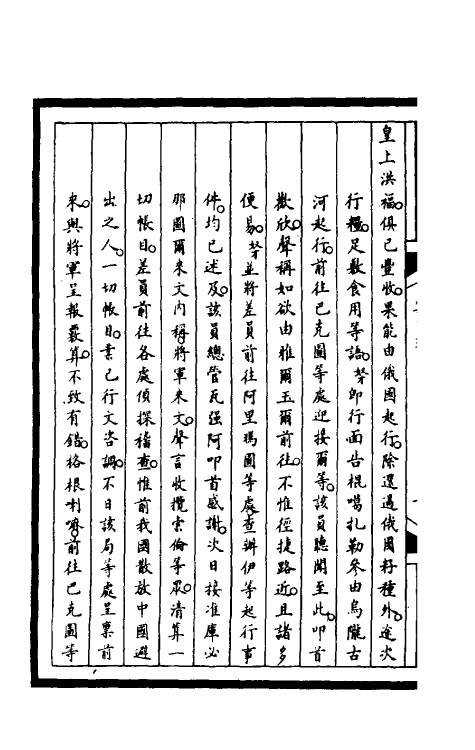 皇上洪福。俱已豐收。果能由俄國起行。除還過俄國籽種外。途次
行糧。足敷食用等語。䓁卽行面告棍噶扎勒參由烏隴古
河起行。前往巴克圖等處迎接爾等。該員聽聞至此。叩首
歡欣。聲稱如欲由雅爾玉爾前往。不惟徑捷路近。且諸多
便易。䓁並將差員前往阿里瑪圖等處查辦伊等起行事
件。均已述及。該員總管瓦强阿叩首感謝。次日接准庫必
那圖爾來文內稱。將軍來文。聲言收攬索倫等衆。清算一
切帳目。差員前往各處偵探稽查。惟前我國散放中國避
出之人。一切帳目。業已行文咨調。不日該局等處呈稟前
來。與將軍呈報覈算。不致有錯。格根喇嘛。前往巴克圖等